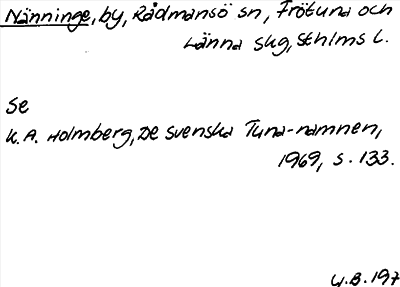 Nänninge, by, Rådmansö sn, Frötuna och
Länna skg, Sthlms l.
Se
K.A. Holmberg, De svenska Tuna-namnen,
1969, s. 133.
G.B. 197